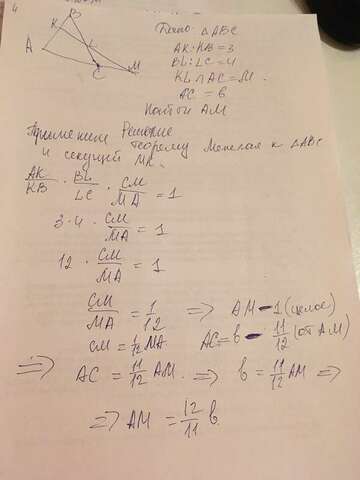 4
B
K
A
L
C
M
Дано: △ABC
AK:KB=3
BL:LC=4
KL∩AC=M.
AC = b
Найти AM
Решение
Применим теорему Менелая к △ABC
и секущей MK.
AK/KB · BL/LC · CM/MA = 1
3·4 · CM/MA = 1
12 · CM/MA = 1
CM/MA = 1/12 ⇒ AM – 1 (целое)
CM = 1/12 MA AC = b – 11/12 (от AM)
⇒ AC = 11/12 AM. ⇒ b = 11/12 AM ⇒
⇒ AM = 12/11 b.